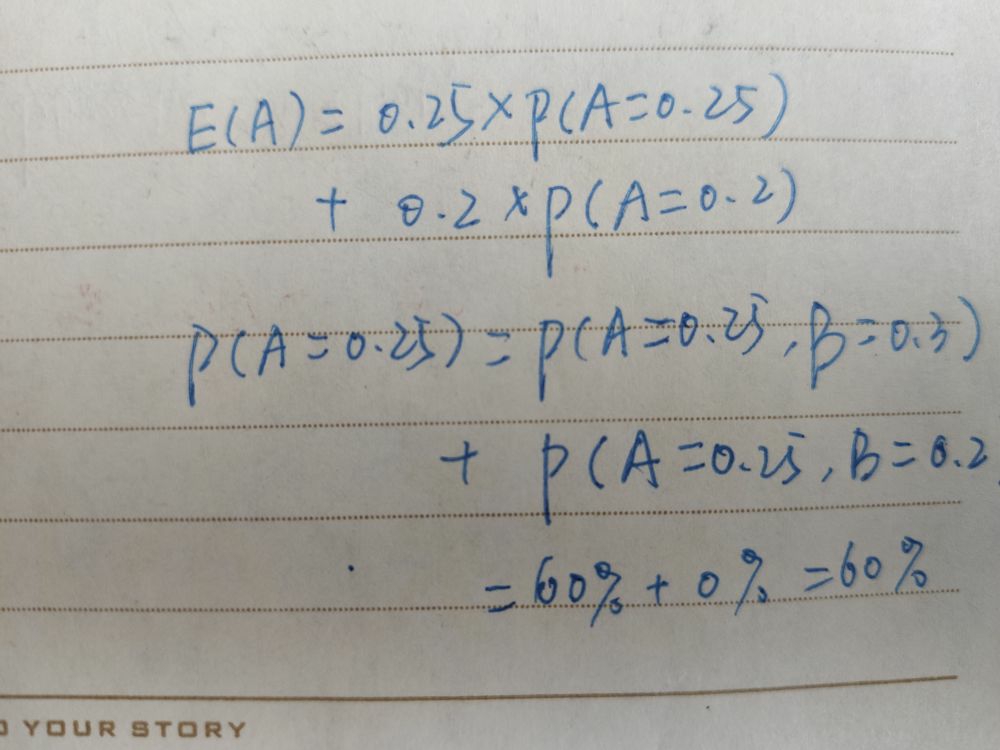 E(A) = 0.25 × P(A=0.25)
+ 0.2 × P(A=0.2)
P(A=0.25) = P(A=0.25, B=0.3)
+ P(A=0.25, B=0.2
= 60% + 0% = 60%
YOUR STORY